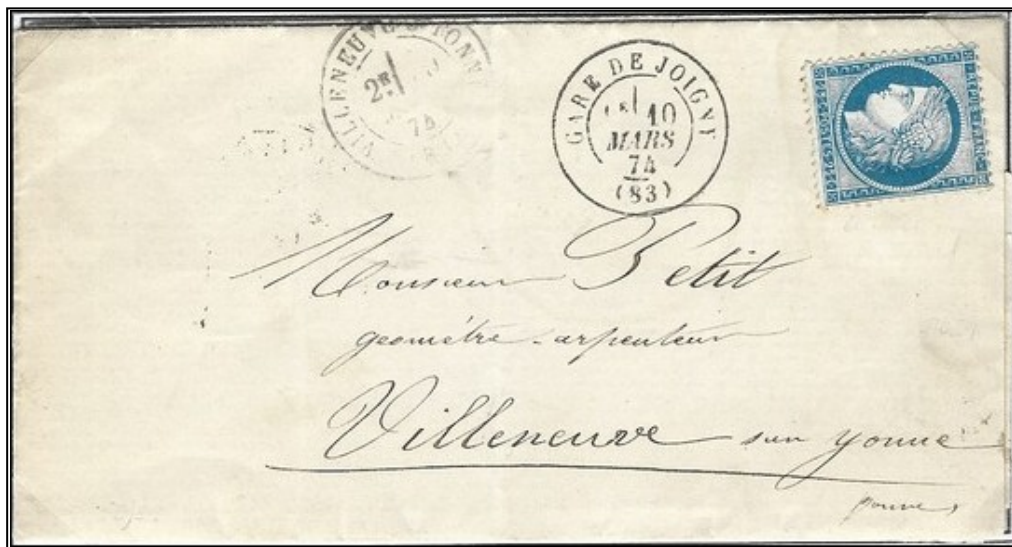 VILLENEUVE S YONNE
2E
74
GARE DE JOIGNY
10
MARS
74
(83)
Monsieur Petit
geométre-arpenteur
Villeneuve sur yonne